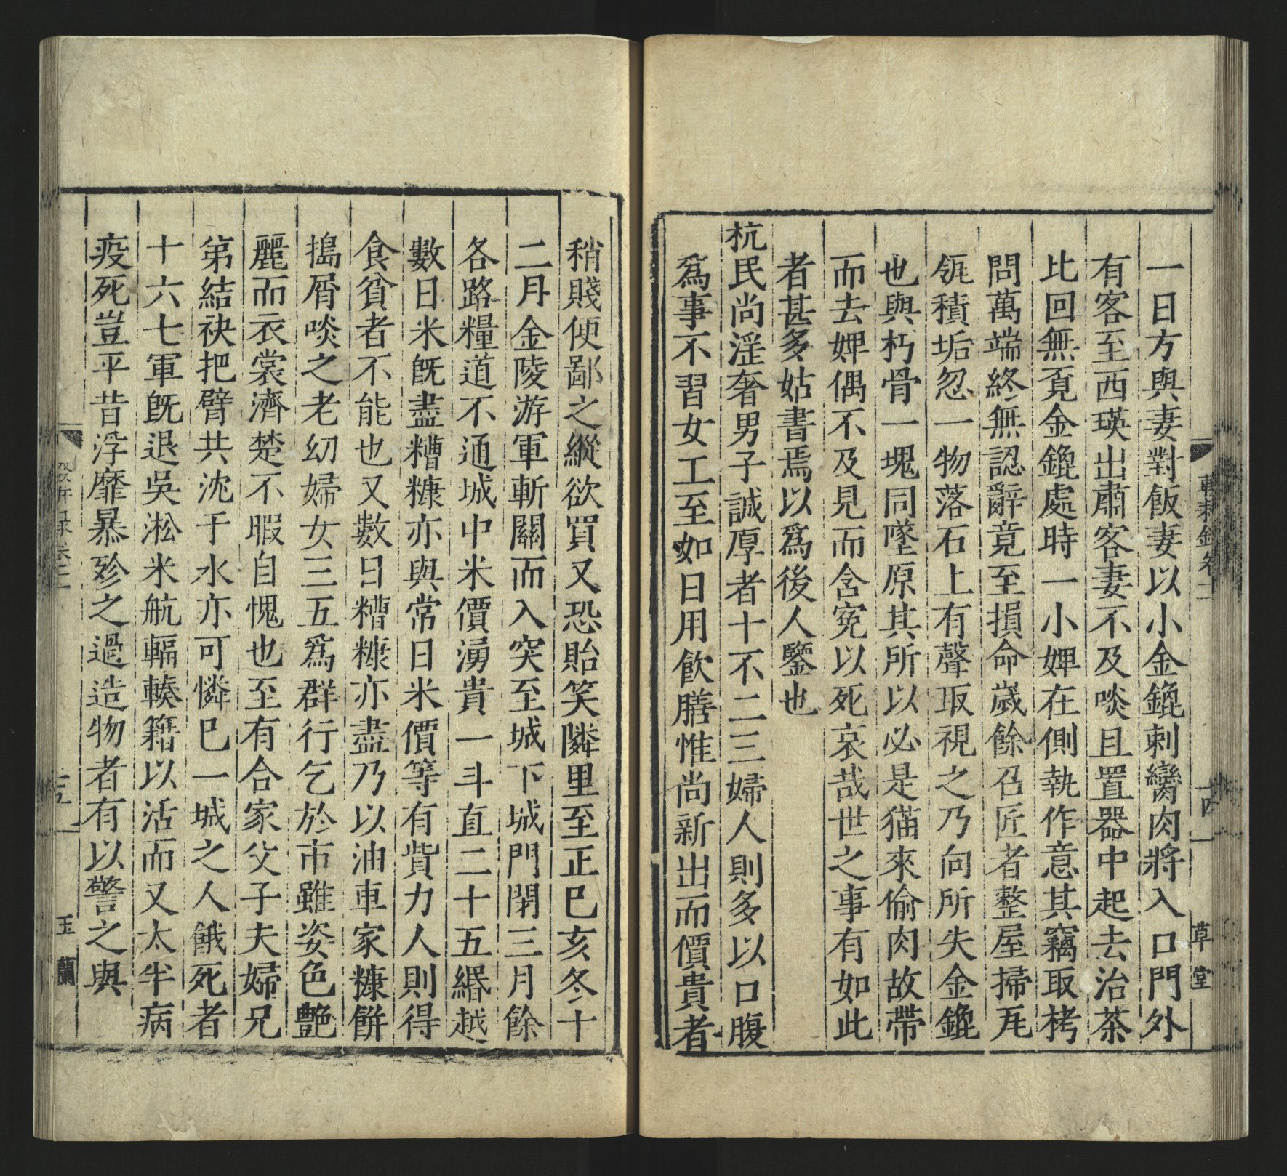 輟耕錄卷十一
十四
草堂
一日方與妻對飯妻以小金鎞刺臠肉將入口門外
有客至西瑛出肅客妻不及啖且置器中起去治茶
比回無覔金鎞處時一小婢在側執作意其竊取栲
問萬端終無認辭竟至損命歲餘召匠者整屋掃瓦
瓴積垢忽一物落石上有聲取視之乃向所失金鎞
也與朽骨一塊同墜原其所以必是猫來偷肉故帶
而去婢偶不及見而含寃以死哀哉世之事有如此
者甚多姑書焉以爲後人鑒也
杭民尚淫奢男子誠厚者十不二三婦人則多以口腹
爲事不習女工至如日用飲膳惟尚新出而價貴者
稍賤便鄙之縱欲買又恐貽笑隣里至正巳亥冬十
二月金陵游軍斬關而入突至城下城門閉三月餘
各路糧道不通城中米價湧貴一斗直二十五緡越
數日米旣盡糟糠亦與常日米價等有貲力人則得
食貧者不能也又數日糟糠亦盡乃以油車家糠餅
搗屑啖之老幼婦女三五爲群行乞於市雖姿色艷
麗而衣裳濟楚不暇自愧也至有合家父子夫婦兄
第結袂把臂共沈于水亦可憐巳一城之人餓死者
十六七軍旣退吳淞米航輻輳籍以活而又太半病
疫死豈平昔浮靡暴殄之過造物者有以警之與
十五
玉蘭